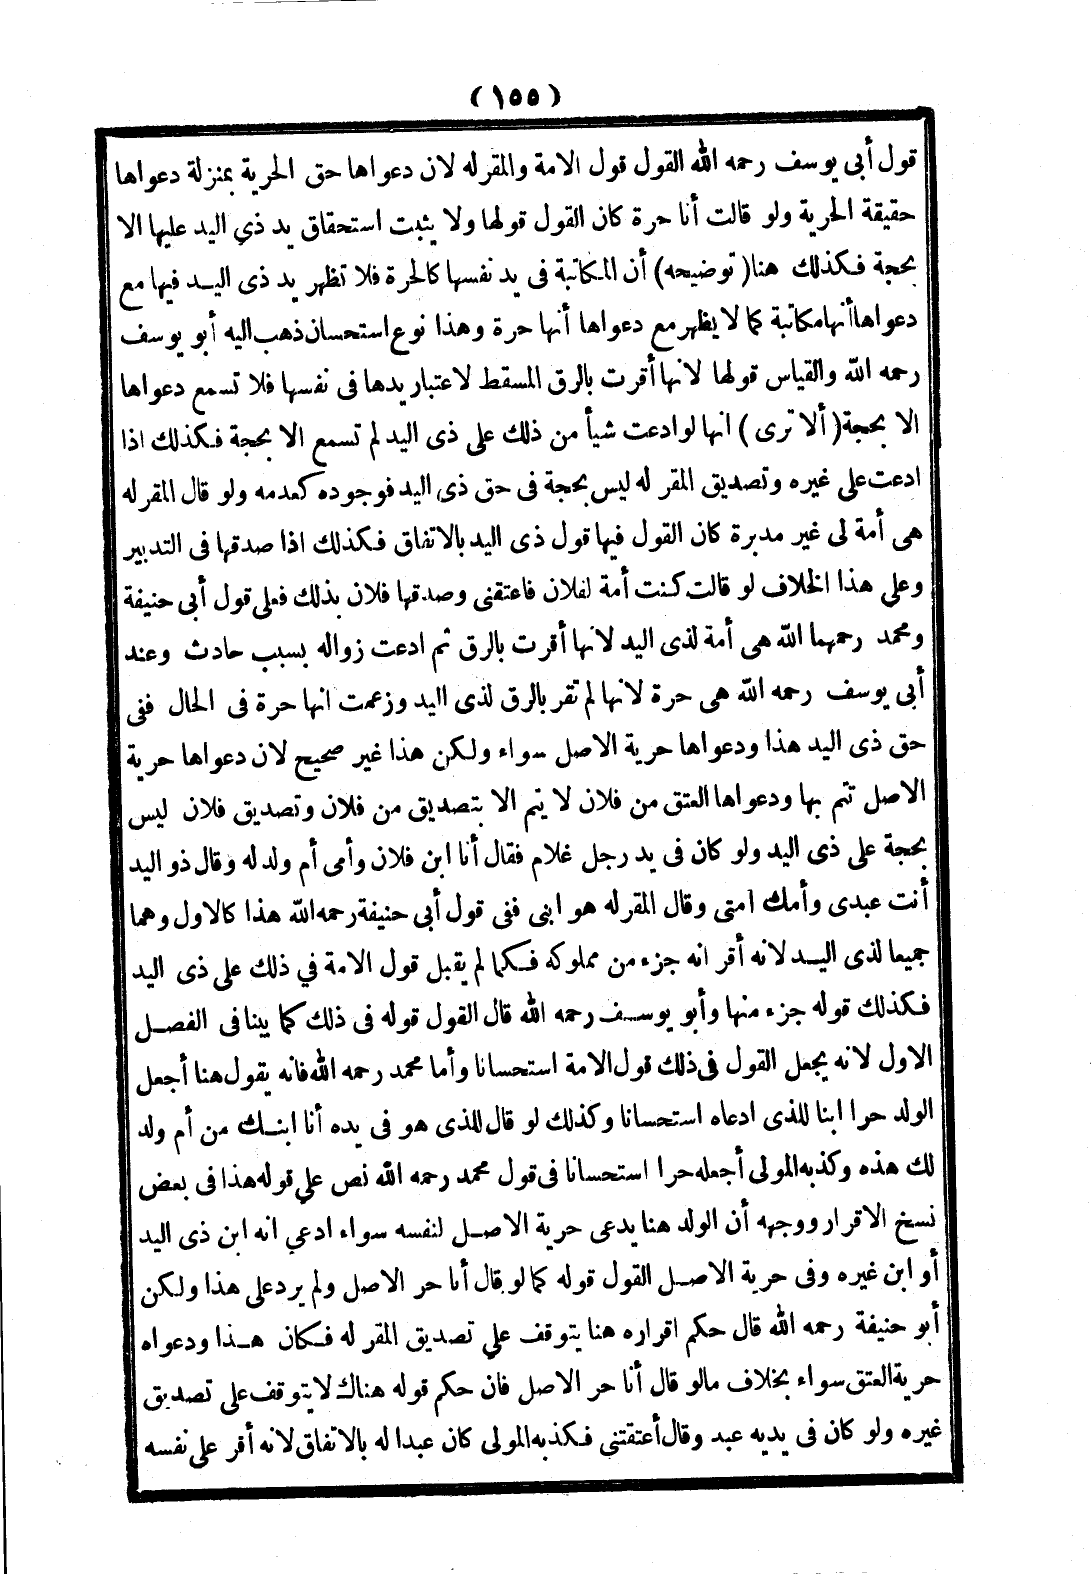 (١٥٥)
قول أبى يوسف رحمه الله القول قول الامة والمقر له لان دعواها حق الحرية بمنزلة دعواها
حقيقة الحرية ولو قالت أنا حرة كان القول قولها ولا يثبت استحقاق يد ذي اليد عليها الا
بحجة فكذلك هنا (توضيحه) أن المكاتبة فى يد نفسها كالحرة فلا تظهر يد ذى اليد فيها مع
دعواها أنها مكاتبة كما لا يظهر مع دعواها أنها حرة وهذا نوع استحسان ذهب اليه أبو يوسف
رحمه الله والقياس قولها لانها أقرت بالرق المسقط لاعتبار يدها فى نفسها فلا تسمع دعواها
الا بحجة (ألا ترى) انها لو ادعت شيأ من ذلك على ذى اليد لم تسمع الا بحجة فكذلك اذا
ادعت على غيره وتصديق المقر له ليس بحجة فى حق ذى اليد فوجوده كعدمه ولو قال المقر له
هى أمة لى غير مدبرة كان القول فيها قول ذى اليد بالاتفاق فكذلك اذا صدقها فى التدبير
وعلى هذا الخلاف لو قالت كنت أمة لفلان فاعتقنى وصدقها فلان بذلك فعلى قول أبى حنيفة
ومحمد رحمهما الله هى أمة لذى اليد لانها أقرت بالرق ثم ادعت زواله بسبب حادث وعند
أبى يوسف رحمه الله هى حرة لانها لم تقر بالرق لذى اليد وزعمت انها حرة فى الحال ففى
حق ذى اليد هذا ودعواها حرية الاصل سواء ولكن هذا غير صحيح لان دعواها حرية
الاصل تتم بها ودعواها العتق من فلان لا يتم الا بتصديق من فلان وتصديق فلان ليس
بحجة على ذى اليد ولو كان فى يد رجل غلام فقال أنا ابن فلان وأمى أم ولد له وقال ذو اليد
أنت عبدى وأمك امتى وقال المقر له هو ابنى ففى قول أبى حنيفة رحمه الله هذا كالاول وهما
جميعا لذى اليد لانه أقر انه جزء من مملوكه فكما لم يقبل قول الامة في ذلك على ذى اليد
فكذلك قوله جزء منها وأبو يوسف رحمه الله قال القول قوله فى ذلك كما بينا فى الفصل
الاول لانه يجعل القول فى ذلك قول الامة استحسانا وأما محمد رحمه الله فانه يقول هنا أجعل
الولد حرا ابنا للذى ادعاه استحسانا وكذلك لو قال للذى هو فى يده أنا ابنك من أم ولد
لك هذه وكذبه المولى أجعله حرا استحسانا فى قول محمد رحمه الله نص علي قوله هذا فى بعض
نسخ الاقرار ووجهه أن الولد هنا يدعى حرية الاصل لنفسه سواء ادعي انه ابن ذى اليد
أو ابن غيره وفى حرية الاصل القول قوله كما لو قال أنا حر الاصل ولم يرد على هذا ولكن
أبو حنيفة رحمه الله قال حكم اقراره هنا يتوقف علي تصديق المقر له فكان هذا ودعواه
حرية العتق سواء بخلاف مالو قال أنا حر الاصل فان حكم قوله هناك لا يتوقف على تصديق
غيره ولو كان فى يديه عبد وقال أعتقتنى فكذبه المولى كان عبدا له بالاتفاق لانه أقر على نفسه